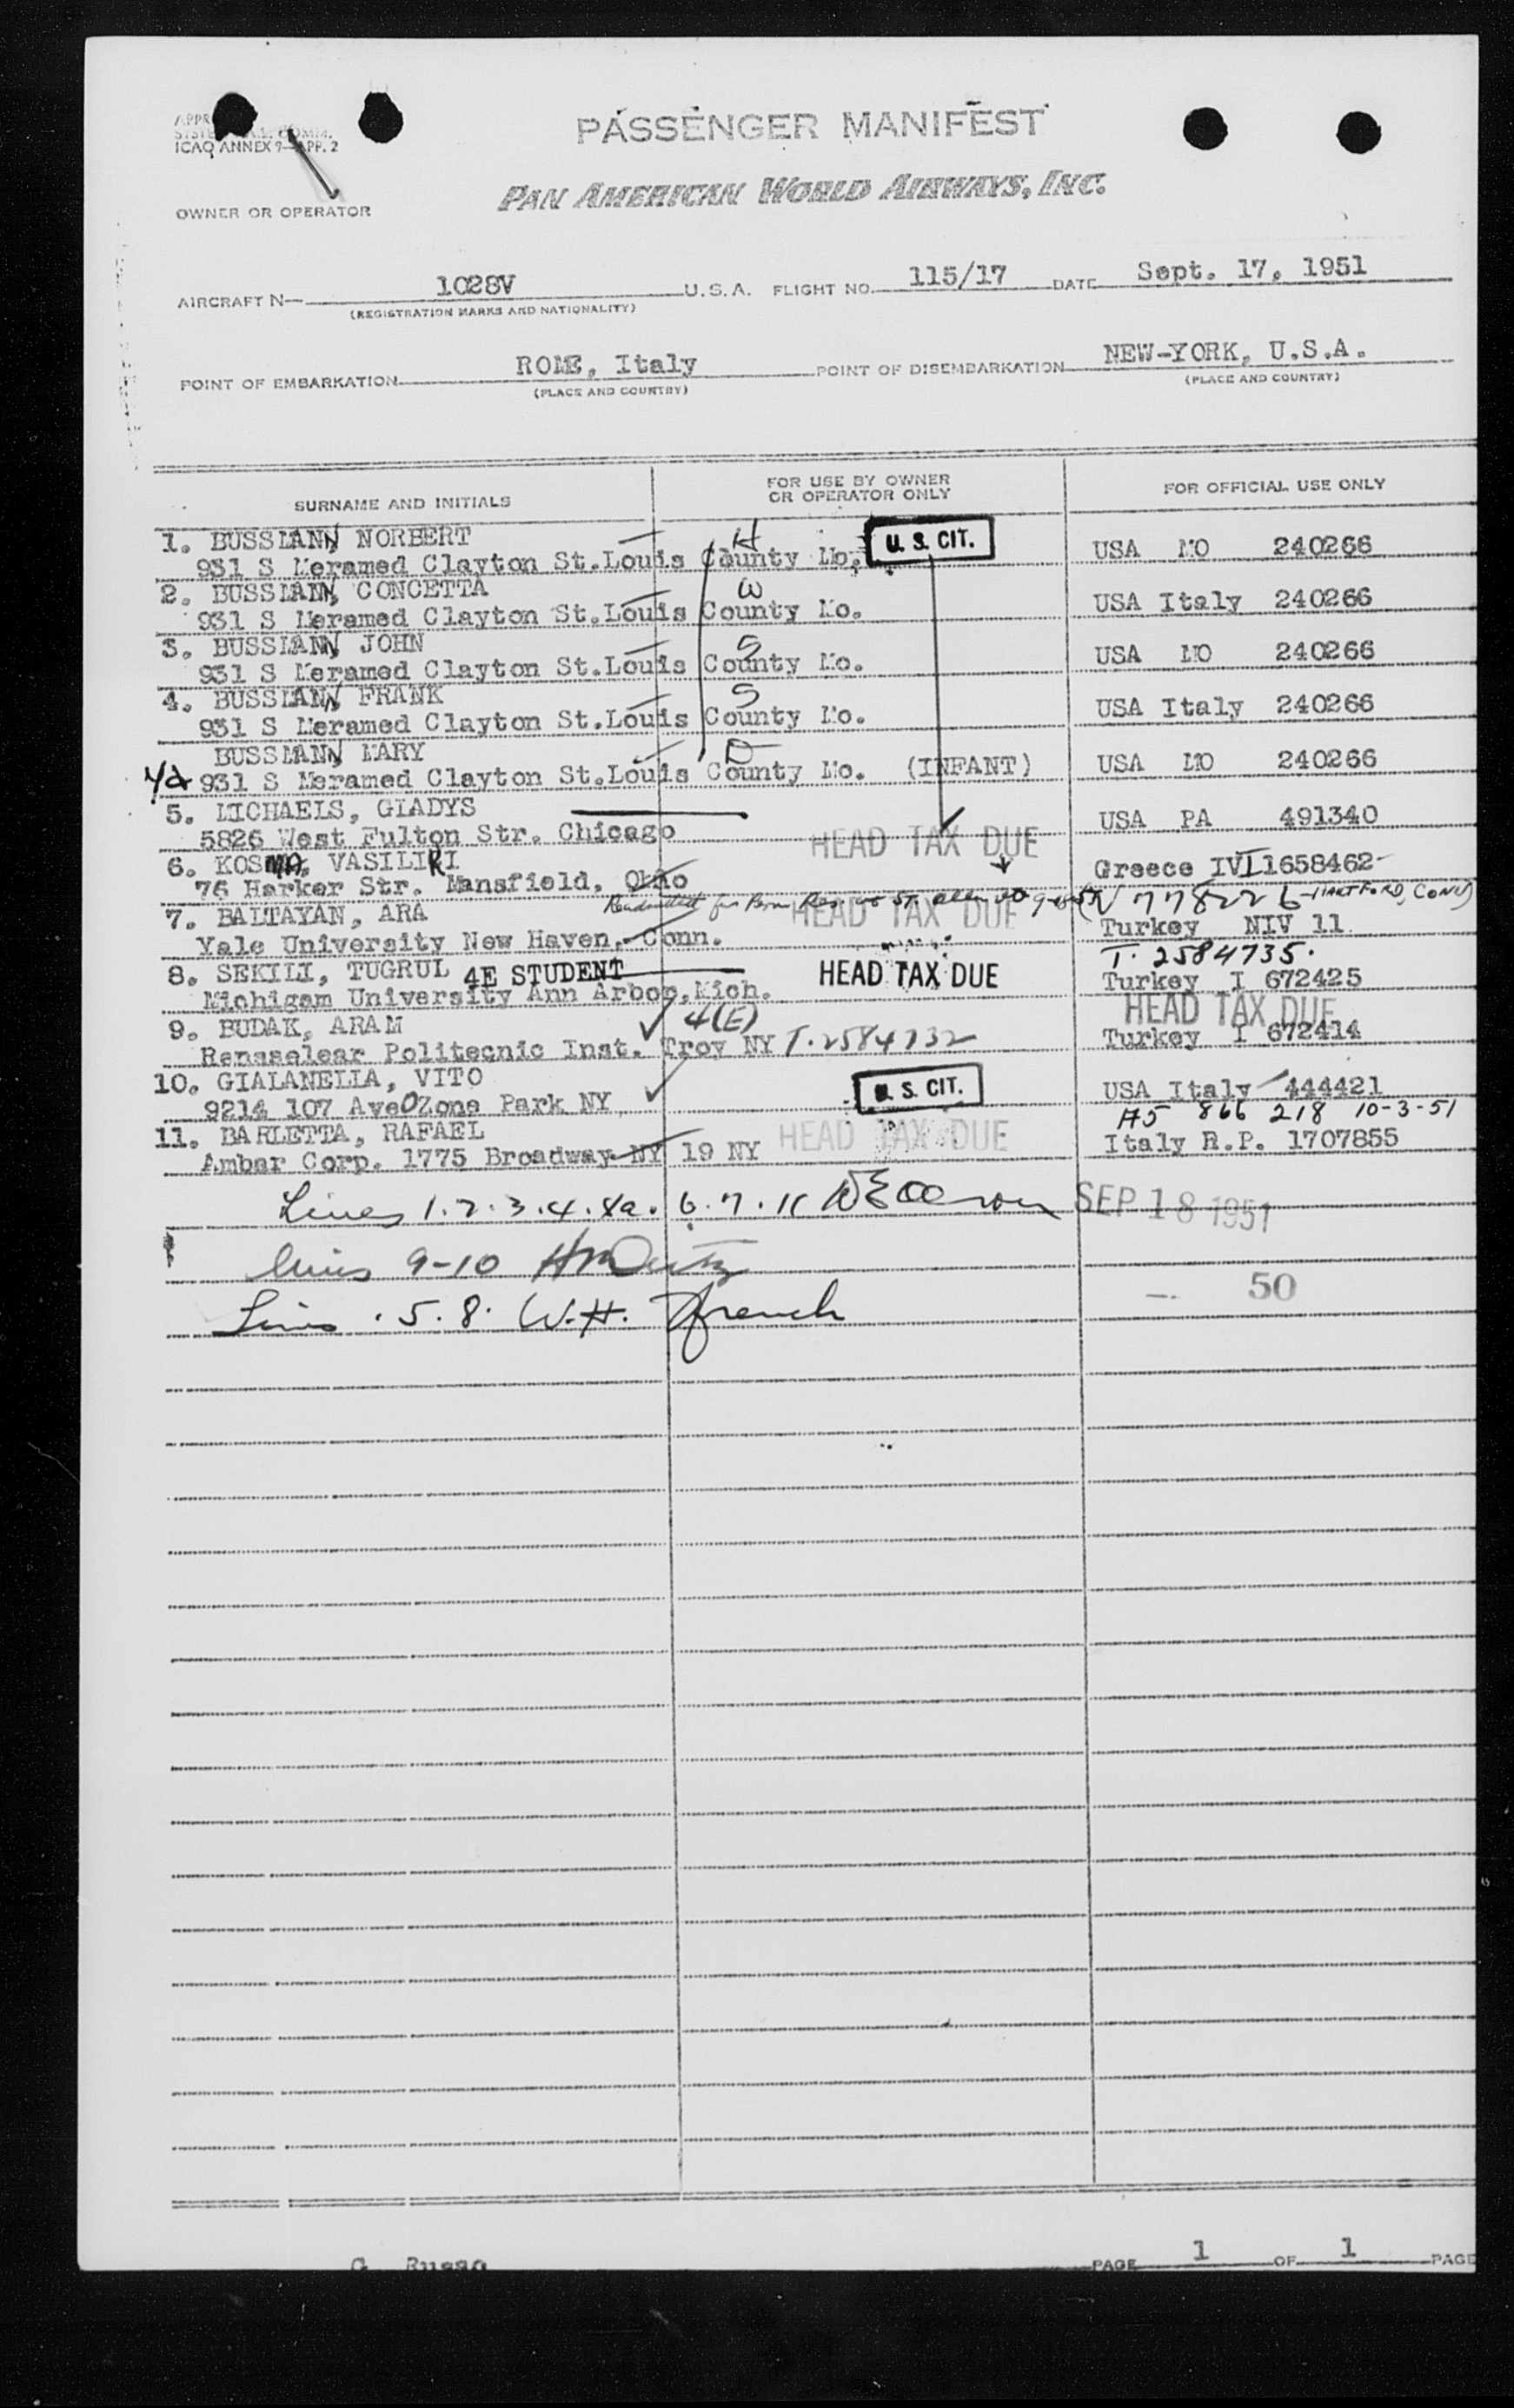 PASSENGER MANIFEST
ICAO ANNEX 9-APP. 2
PAN AMERICAN WORLD AIRWAYS, INC.
OWNER OR OPERATOR
AIRCRAFT N- 1028V U.S.A. FLIGHT NO. 115/17 DATE Sept. 17, 1951
(REGISTRATION MARKS AND NATIONALITY)
POINT OF EMBARKATION ROME, Italy POINT OF DISEMBARKATION NEW-YORK, U.S.A.
(PLACE AND COUNTRY) (PLACE AND COUNTRY)
SURNAME AND INITIALS FOR USE BY OWNER OR OPERATOR ONLY FOR OFFICIAL USE ONLY
1. BUSSMANN NORBERT H U. S. CIT.
931 S Meramed Clayton St.Louis County Mo. USA MO 240266
2. BUSSMANN, CONCETTA W
931 S Meramed Clayton St.Louis County Mo. USA Italy 240266
3. BUSSMANN, JOHN S
931 S Meramed Clayton St.Louis County Mo. USA MO 240266
4. BUSSMANN, FRANK S
931 S Meramed Clayton St.Louis County Mo. USA Italy 240266
BUSSMANN, MARY D
4a 931 S Meramed Clayton St.Louis County Mo. (INFANT) USA MO 240266
5. MICHAELS, GLADYS
5826 West Fulton Str. Chicago HEAD TAX DUE USA PA 491340
6. KOSMA, VASILIKI
76 Harker Str. Mansfield, Ohio Greece IVI1658462
7. BALTAYAN, ARA HEAD TAX DUE HARTFORD, CONN
Yale University New Haven, Conn. Turkey NIV 11
T. 2584735.
8. SEKILI, TUGRUL 4E STUDENT HEAD TAX DUE
Michigam University Ann Arbor, Mich. Turkey I 672425
9. BUDAK, ARAM 4(E) HEAD TAX DUE
Rensselear Politecnic Inst. Troy NY T.2584732 Turkey I 672414
10. GIALANELLA, VITO U. S. CIT.
9214 107 Ave OZone Park NY USA Italy 444421
A5 866 218 10-3-51
11. BARLETTA, RAFAEL HEAD TAX DUE
Ambar Corp. 1775 Broadway NY 19 NY Italy R.P. 1707855
Lines 1.2.3.4.4a. 6.7.11 SEP 18 1951
lines 9-10
50
Lines . 5. 8. W.H. French
G. Russo
PAGE 1 OF 1 PAGE